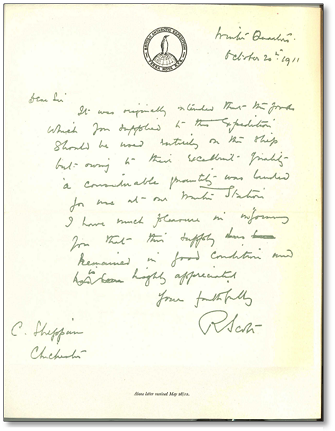 BRITISH ANTARCTIC EXPEDITION
TERRA NOVA R.Y.S.
Winter Quarters.
October 20th 1911
Dear Sir
It was originally intended that the goods
which you supplied to this Expedition
should be used entirely on the ship
but owing to their excellent quality
a considerable quantity was landed
for use at our Winter Station
I have much pleasure in informing
you that this supply has
remained in good condition and
highly appreciated
Yours faithfully
R Scott
C. Shippam
Chichester
Above letter received May 1912.